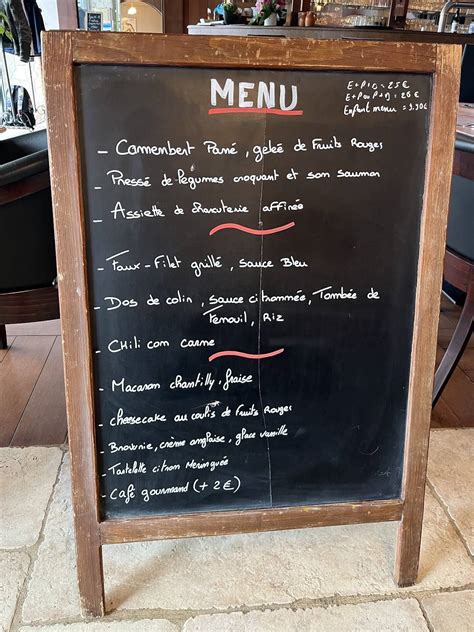 MENU
E+P+D = 25€
E+P ou P+D = 20€
Enfant menu = 9.90€
- Camembert Pané, gelée de Fruits Rouges
- Pressé de légumes croquant et son saumon
- Assiette de charcuterie affinée
- Faux-Filet grillé, sauce Bleu
- Dos de colin, sauce citronnée, Tombée de
Fenouil, Riz
- CHili com carne
- Macaron chantilly, fraise
- cheesecake au coulis de Fruits Rouges
- Brownie, crème anglaise, glace vanille
- Tartelette citron Meringuée
- Café gourmand (+2€)